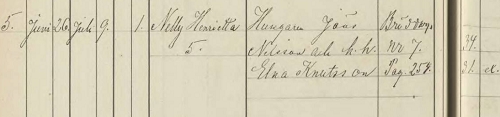 5. Juni 26. Juli 9. 1. Nelly Henrietta Husaren Jöns
5. Nilsson och h. h. nr 7. 34.
Elna Knutsson Pag. 254. 31. x.